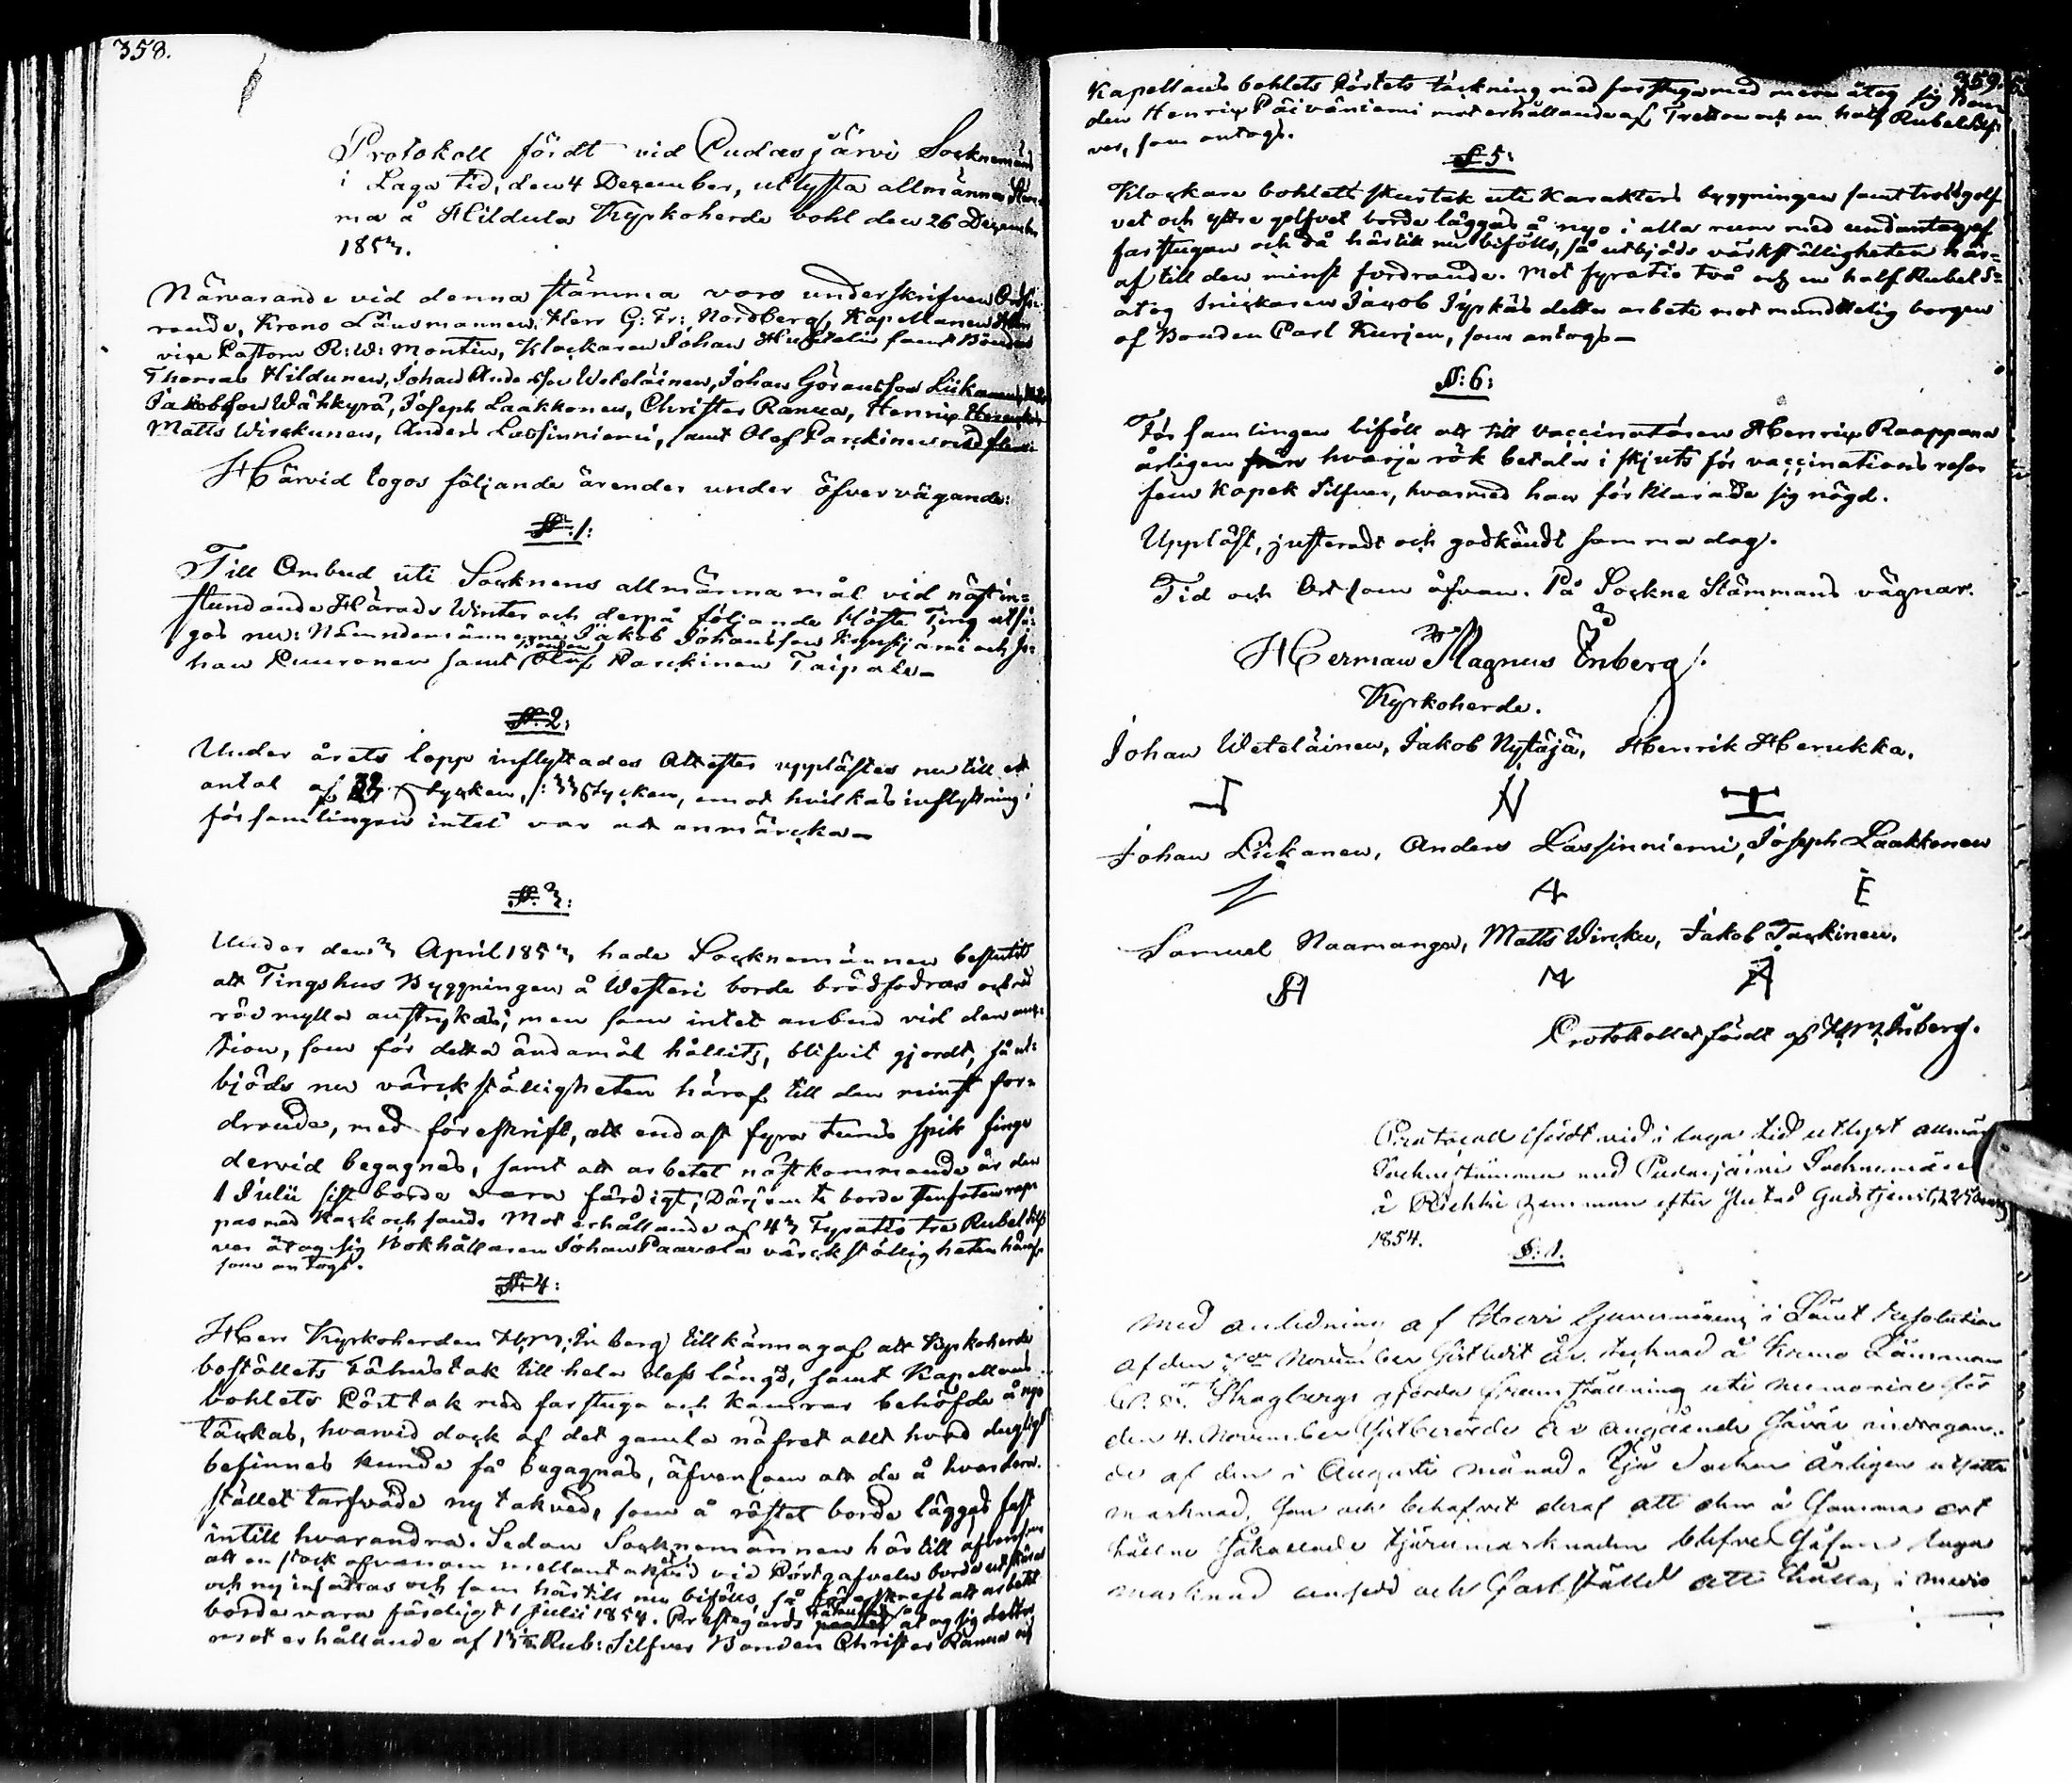 358.
Protokoll fördt vid Pudasjärvi Socknemäns
i Laga tid, den 4 Dezember, utlysta allmänna Stäm-
ma å Hildula Kyrkoherde bohl den 26 Dezember
1853.
Närvarande vid denna stämma voro underskrifven Ordfö-
rande, Krono Länsmannen, Herr G: Fr: Nordberg, Kapellanen Herr
vice Pastorn R: W: Montin, Klockaren Johan samt Bönderne
Thomas Hildunen, Johan Andersson Weteläinen, Johan Göransson Liikanen,
Jakobsson Wähkyrä, Joseph Laakkonen, Christer Ranua, Henrik
Matts Wirckunen, Anders Lassinniemi, samt Olof Parckinen med flere.
Härvid togos följande ärender under öfvervägande:
§: 1:
Till Ombud uti Socknens allmänna mål vid näst in-
stundande Härads Winter och derpå följande Höste Ting utså-
gos nu: Nämndemännerne Jakob Johansson och Jo-
han Puuronen samt Bonden Olof Parckinen Taipale–
§: 2:
Under årets lopp inflyttades Attester upplästes nu till ett
antal af 33 Stycken, /: 33 Stycken, emot hvilkas inflyttning i
församlingen intet var att anmärcka–
§: 3:
Under den 3 April 1853, hade Socknemännen beslutit
att Tingshus Byggningen å Westeri borde brädfodras och med
röd mylla anstrykas; men som intet anbud vid den auk-
tion, som för detta ändamål hållits, blifvit gjordt, så ut-
bjöds nu värckställigheten häraf till den minst for-
drande, med föreskrift, att endast fyra tums spik finge
dervid begagnas, samt att arbetet nästkommande år den
1 Julii sist borde vara färdigt; Därjemte borde stenfoten rap-
pas med kalk och sand. Mot erhållande af 43 Fyratio tre Rubel Silf-
ver åtog sig Bokhållaren Johan Paavola värckställigheten häraf,
som antogs.
§: 4:
Herr Kyrkoherden H: M: Enberg tillkännagaf att Kyrkoherde
boställets Fähustak till hela dess längd, samt Kapellans
bohlets Pörttak med farstuga och kamrar behöfde å nyo
täckas, hvarvid dock af det gamla näfret allt hvad dugligt
befinnes kunde få begagnas, äfvensom att de å hvardera
stället tarfvade ny takved, som å röstet borde läggas fast
intill hvarandra. Sedan Socknemännen härtill äfvensom
att en stock ofvanom mellantaket vid Pörtgafveln borde utskäras
och ny insättas och som härtill nu bifölls, så föreskrefs att arbetet
borde vara färdigt 1 Julii 1854. Prestegårds Fähustak åtog sig detta
mot erhållande af 13½ Rub: Silfver Bonden Christer Ranua och
359.
Kapellans bohlets Pörtets täckning med farstuga med mera åtog sig Bon-
den Henrik Päiväniemi mot erhållande af Tretton och en half Rubel Silf-
ver, som antogs.
§ 5:
Klockare bohlets skurtak uti Karakters byggningen samt trossgolf-
vet och yttre golfvet borde läggas å nyo i alla rum med undantag af
farstugan och då härtill nu bifölls, så utbjöds värkställigheten här-
af till den minst fordrande. Mot fyratio två och en half Rubel S–
åtog Snickaren Jacob Jyrkäs detta arbete mot mundtelig borgen
af Bonden Carl Kurjen, som antogs–
§: 6:
Församlingen biföll att till vaccinatören Henrik Raappana
årligen hvarje rök betalar i skjuts för vaccinations resor
fem kopek Silfver, hvarmed han förklarade sig nögd.
Uppläst, justeradt och godkändt samma dag.
Tid och Ort som ofvan. På Sockne Stämmans vägnar.
Herman Magnus Enberg/.
Kyrkoherde.
Johan Weteläinen, Jakob Nytäjä, Henrik Herukka.
N
Johan Liikanen, Anders Lassinniemi, Joseph Laakkonen
A E
Samuel Naamanga, Matts Wircku, Jakob Tackinen.
M
Protokollet fördt af H: M: Enberg.
Protocoll fördt vid i laga tid utlyst allmän
Socknestämma med Pudasjärvi Socknemän
i Riekki hemman efter slutad Gudstjenst,
1854.
§: 1.
Med anledning af Herr Guvernörens i Länet Resolution
af den November sistledit år, tecknad å Krono Länsman
Skogbergs gjorda framställning uti memorial för
den 4 November sistberörde år angående
de af den i Augusti månad. Sju Socken årligen utsatte
marknad, som och behofvet deraf att den å samma ort
hållne såkallade tjäremarknaden blifver såsom laga
marknad ansedd och fastställd att hållas i medio